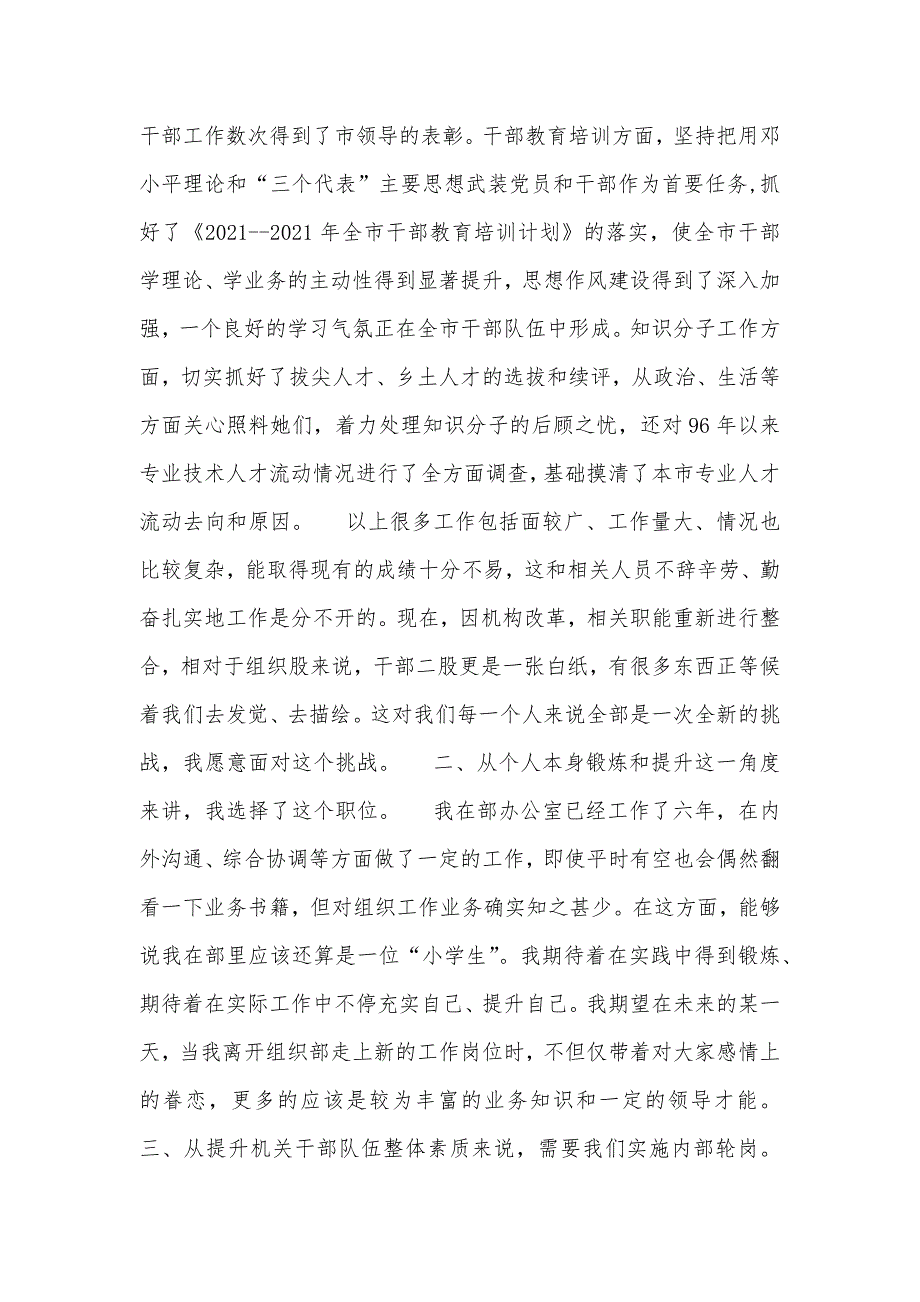 干部工作数次得到了市领导的表彰。干部教育培训方面，坚持把用邓
小平理论和“三个代表”主要思想武装党员和干部作为首要任务,抓
好了《2021--2021 年全市干部教育培训计划》的落实，使全市干部
学理论、学业务的主动性得到显著提升，思想作风建设得到了深入加
强，一个良好的学习气氛正在全市干部队伍中形成。知识分子工作方
面，切实抓好了拔尖人才、乡土人才的选拔和续评，从政治、生活等
方面关心照料她们，着力处理知识分子的后顾之忧，还对 96 年以来
专业技术人才流动情况进行了全方面调查，基础摸清了本市专业人才
流动去向和原因。　　以上很多工作包括面较广、工作量大、情况也
比较复杂，能取得现有的成绩十分不易，这和相关人员不辞辛劳、勤
奋扎实地工作是分不开的。现在，因机构改革，相关职能重新进行整
合，相对于组织股来说，干部二股更是一张白纸，有很多东西正等候
着我们去发觉、去描绘。这对我们每一个人来说全部是一次全新的挑
战，我愿意面对这个挑战。　　二、从个人本身锻炼和提升这一角度
来讲，我选择了这个职位。　　我在部办公室已经工作了六年，在内
外沟通、综合协调等方面做了一定的工作，即使平时有空也会偶然翻
看一下业务书籍，但对组织工作业务确实知之甚少。在这方面，能够
说我在部里应该还算是一位“小学生”。我期待着在实践中得到锻炼、
期待着在实际工作中不停充实自己、提升自己。我期望在未来的某一
天，当我离开组织部走上新的工作岗位时，不但仅带着对大家感情上
的眷恋，更多的应该是较为丰富的业务知识和一定的领导才能。
三、从提升机关干部队伍整体素质来说，需要我们实施内部轮岗。